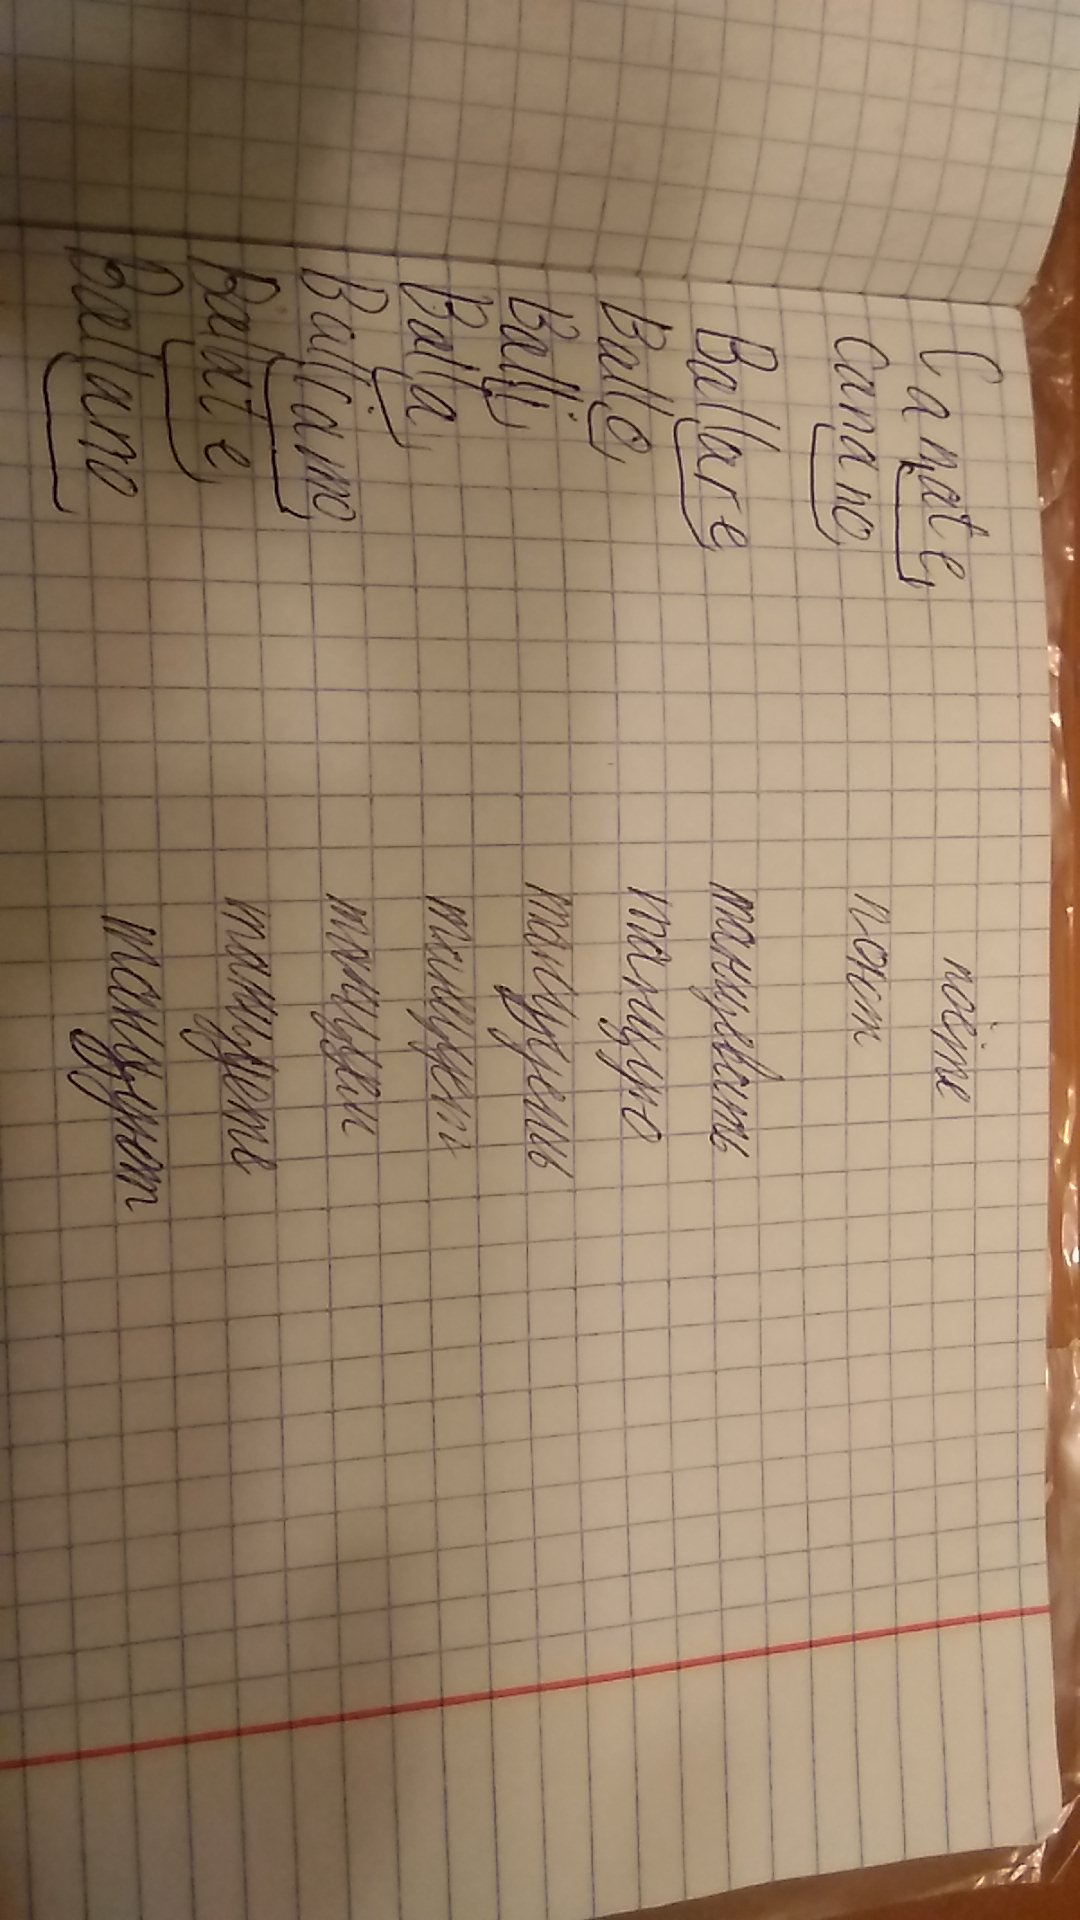 Canate поёте
Canano поют
Ballare танцевать
Ballo танцую
Balli танцуешь
Balla танцует
Balliamo танцуем
Balate танцуете
Ballano танцуют